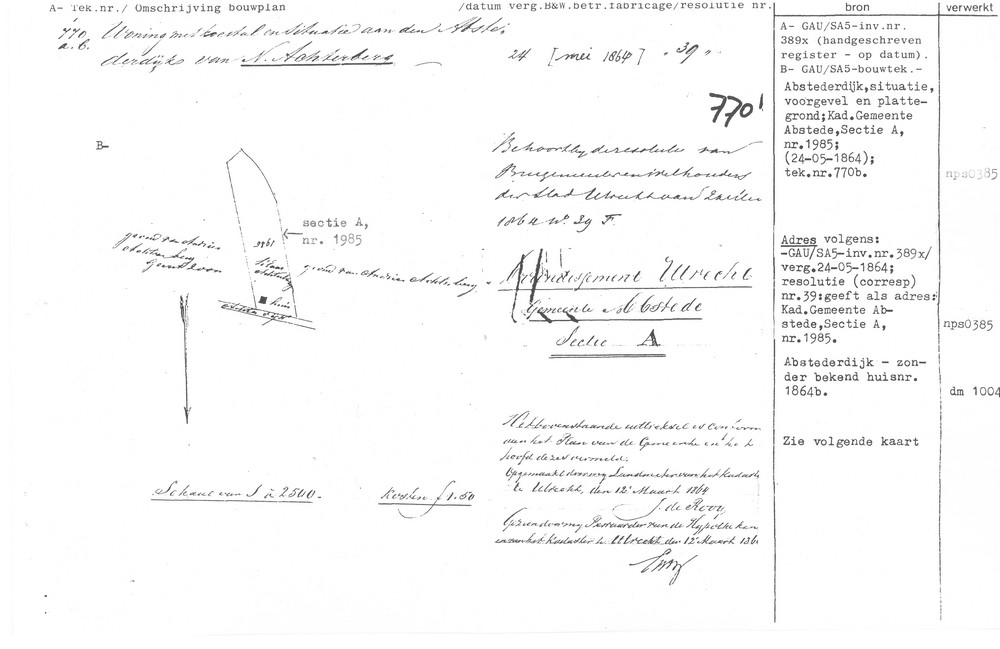 A- Tek.nr./ Omschrijving bouwplan
/datum verg.B&W.betr.fabricage/resolutie nr.
bron
verwerkt
770
a.b.
Woning met koestal en situatie aan den Abste-
derdijk van N. Achterberg
24 [mei 1864] " 39 "
770'
B-
sectie A,
nr. 1985
1985
huis
grond van Adrien Achterberg
Schaal van 1 à 2500.
Kosten f 1.50
Behoort bij de resolutie van
Burgemeester en Wethouders
der Stad Utrecht van
1864 No. 39 F.
Arrondissement Utrecht
Gemeente Abstede
Sectie A
Het bovenstaande uittreksel is conform
aan het Plan van de Gemeente in het
hoofd dezes vermeld.
Opgemaakt door mij Landmeter van het Kadaster
te Utrecht, den 12e Maart 1864
J. de Rooy
Gezien door mij Bewaarder van de Hypotheken
en van het Kadaster te Utrecht den 12e Maart 186
A- GAU/SA5-inv.nr.
389x (handgeschreven
register - op datum).
B- GAU/SA5-bouwtek.-
Abstederdijk,situatie,
voorgevel en platte-
grond;Kad.Gemeente
Abstede,Sectie A,
nr.1985;
(24-05-1864);
tek.nr.770b.
nps0385
Adres volgens:
-GAU/SA5-inv.nr.389x/
verg.24-05-1864;
resolutie (corresp)
nr.39:geeft als adres:
Kad.Gemeente Ab-
stede,Sectie A,
nr.1985.
nps0385
Abstederdijk - zon-
der bekend huisnr.
1864b.
dm 1004
Zie volgende kaart